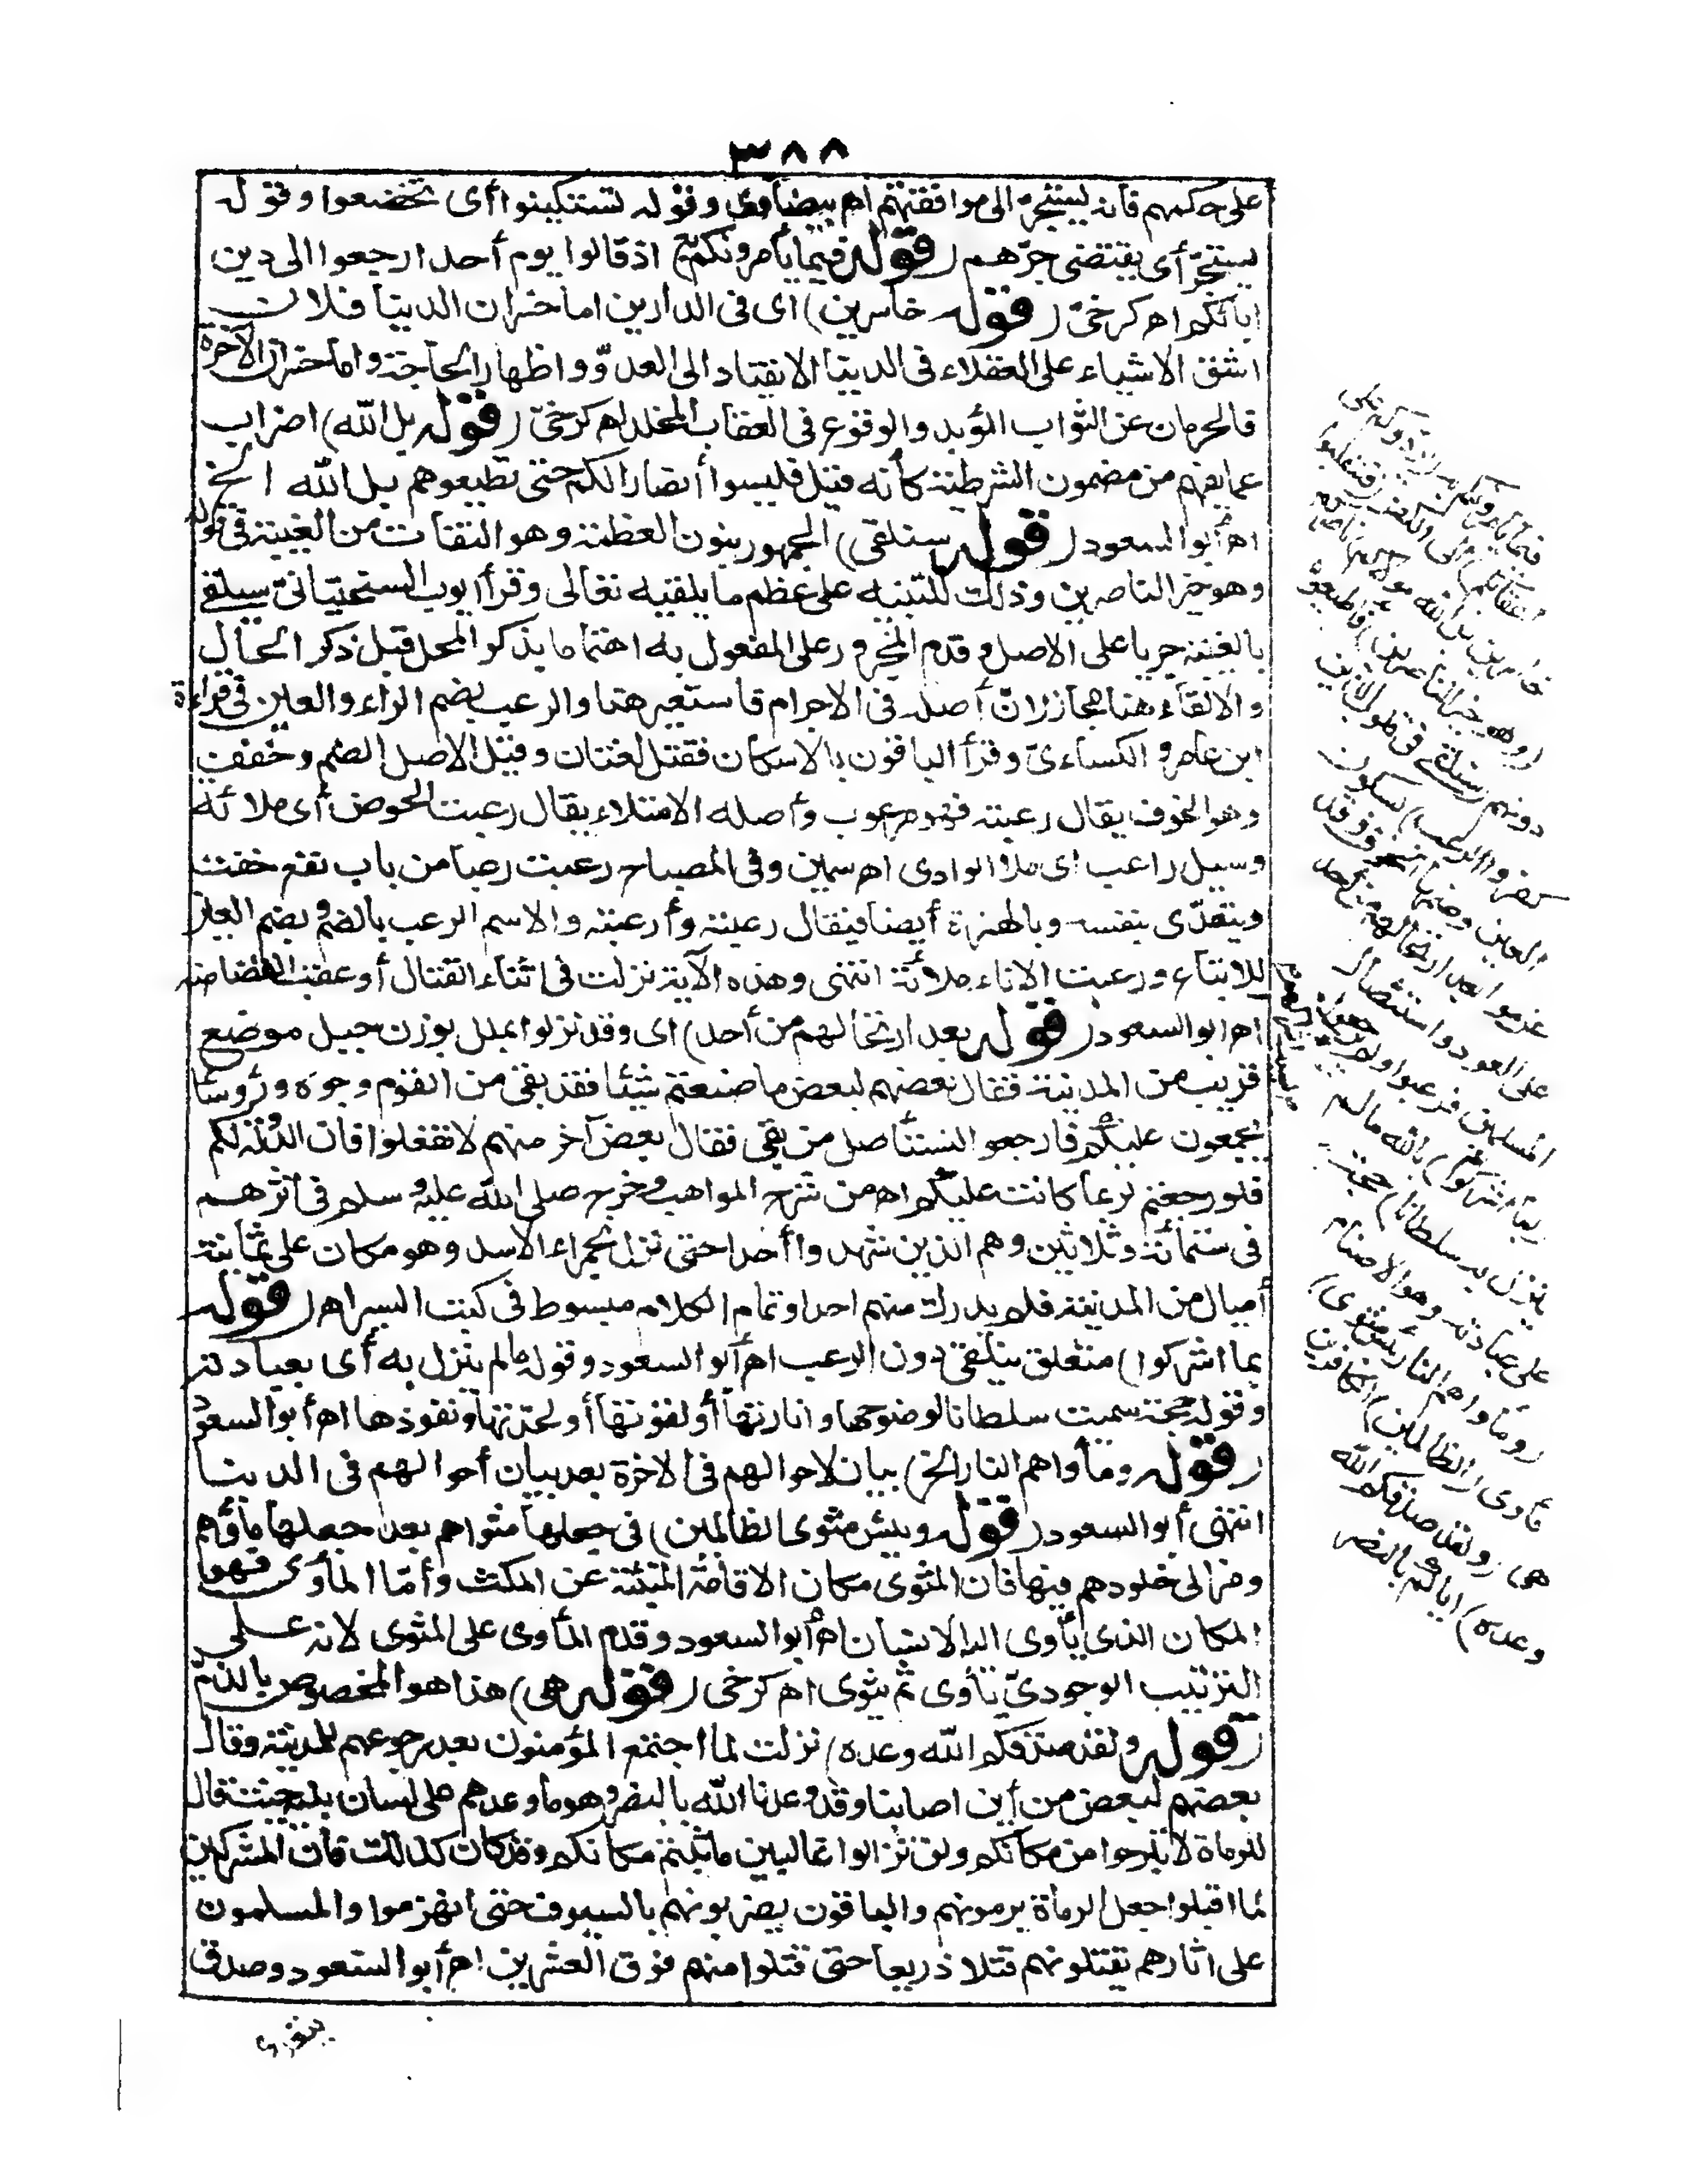 ٣٨٨
على حكمهم فانه يستجره الى موافقتهم اه بيضاوى وقوله تستكينوا أى تخضعوا وقوله
يستجر أى يقتضى جرّهم (قوله فيما يأمرونكم به) اذ قالوا يوم أحد ارجعوا الى دين
ابائكم اه كرخىّ (قوله خاسرين) اى فى الدارين اما خسران الدنيا فلان
اشق الاشياء على العقلاء فى الدنيا الانقياد الى العدوّ واظهار الحاجة واما خسران الآخرة
فالحرمان عن الثواب المؤبد والوقوع فى العقاب المخلد اه كرخىّ (قوله بل الله) اضراب
عما يفهم من مضمون الشرطية كأنه قيل فليسوا أنصارا لكم حتى تطيعوهم بل الله الخ
اه أبو السعود (قوله سنلقى) الجمهور بنون العظمة وهو التفات من الغيبة فى قوله
وهو خير الناصرين وذلك للتنبيه على عظم ما يلقيه تعالى وقرأ ايوب السختيانىّ سيلقى
بالغيبة جريا على الاصل وقدم المجرور على المفعول به اهتماما بذكر المحل قبل ذكر الحال
والالقاء هنا مجاز لانّ أصله فى الاجرام فاستعير هنا والرعب بضم الراء والعين فى قراءة
ابن عامر و الكساءىّ وقرأ الباقون بالاسكان فقيل لغتان وقيل الاصل الضم وخففت
وهو الخوف يقال رعبته فهو مرعوب وأصله الامتلاء يقال رعبت الحوض أى ملائته
وسيل راعب اى ملأ الوادى اه سمين وفى المصباح رعبت رعبا من باب نفع خفت
ويتعدّى بنفسه وبالهمزة أيضا فيقال رعبته وأرعبته والاسم الرعب بالضم وبضم العين
للاتباع ورعبت الاناء ملأته انتهى وهذه الآية نزلت فى اثناء القتال أو عقب انقضاضه
اه ابو السعود (قوله بعد ارتحالهم من أحد) اى وقد نزلوا بملل بوزن جبل موضع
قريب من المدينة فقال بعضهم لبعض ما صنعتم شيئا فقد بقى من القوم وجوه ورؤسا
يجمعون عليكم فارجعوا لنستأصل من بقى فقال بعض آخر منهم لا تفعلوا فان الدولة لكم
فلو رجعتم لربما كانت عليكم اه من شرح المواهب وخرج صلى الله عليه وسلم فى اثرهم
فى ستمائة وثلاثين وهم الذين شهدوا أحدا حتى نزل بحمراء الاسد وهو مكان على ثمانية
أميال من المدينة فلم يدرك منهم احدا وتمام الكلام مبسوط فى كتب السير اه (قوله
بما اشركوا) متعلق بنلقى دون الرعب اه أبو السعود وقوله ما لم ينزل به أى بعبادته
وقوله حجة سميت سلطانا لوضوحها وانارتها أو لقوّتها أو لحدّتها ونفوذها اه أبو السعود
(قوله ومأواهم النار الخ) بيان لاحوالهم فى الآخرة بعد بيان أحوالهم فى الدنيا
انتهى أبو السعود (قوله وبئس مثوى الظالمين) فى جعلها مثواهم بعد جعلها مأواهم
رمز الى خلودهم فيها فان المثوى مكان الاقامة المنبئة عن المكث وأمّا المأوى فهو
المكان الذى يأوى اليه الانسان اه أبو السعود وقدم المأوى على المثوى لانه على
الترتيب الوجودىّ يأوى ثم يثوى اه كرخى (قوله هى) هذا هو المخصوص بالذمّ
(قوله ولقد صدقكم الله وعده) نزلت لما اجتمع المؤمنون بعد رجوعهم للمدينة وقال
بعضهم لبعض من أين اصابنا وقد وعدنا الله بالنصر وهو ما وعدهم على لسان نبيه حيث قال
للرماة لا تبرحوا من مكانكم ولن نزالوا غالبين ما ثبتم مكانكم وقد كان كذلك فان المشركين
لما اقبلوا جعل الرماة يرمونهم والباقون يضربونهم بالسيوف حتى انهزموا والمسلمون
على اثارهم يقتلونهم قتلا ذريعا حتى قتلوا منهم فوق العشرين اه أبو السعود وصدق
على
أعقابكم) الى الكفر (فتنقلبوا
خاسرين بل الله مولاكم) ناصركم
(وهو خير الناصرين) فاطيعوه
دونهم (سنلقى فى قلوب الذين
كفروا الرعب) بسكون
العين وضمها الخوف وقد
عزموا بعد ارتحالهم من أحد
على العود واستئصال
المسلمين فرعبوا ولم يرجعوا
(بما أشركوا) بالله ما لم
ينزل به سلطانا) حجة
على عبادته وهو الاصنام
(ومأواهم النار وبئس مثوى)
مأوى (الظالمين) الكافرين
هى (ولقد صدقكم الله
وعده) اياكم بالنصر